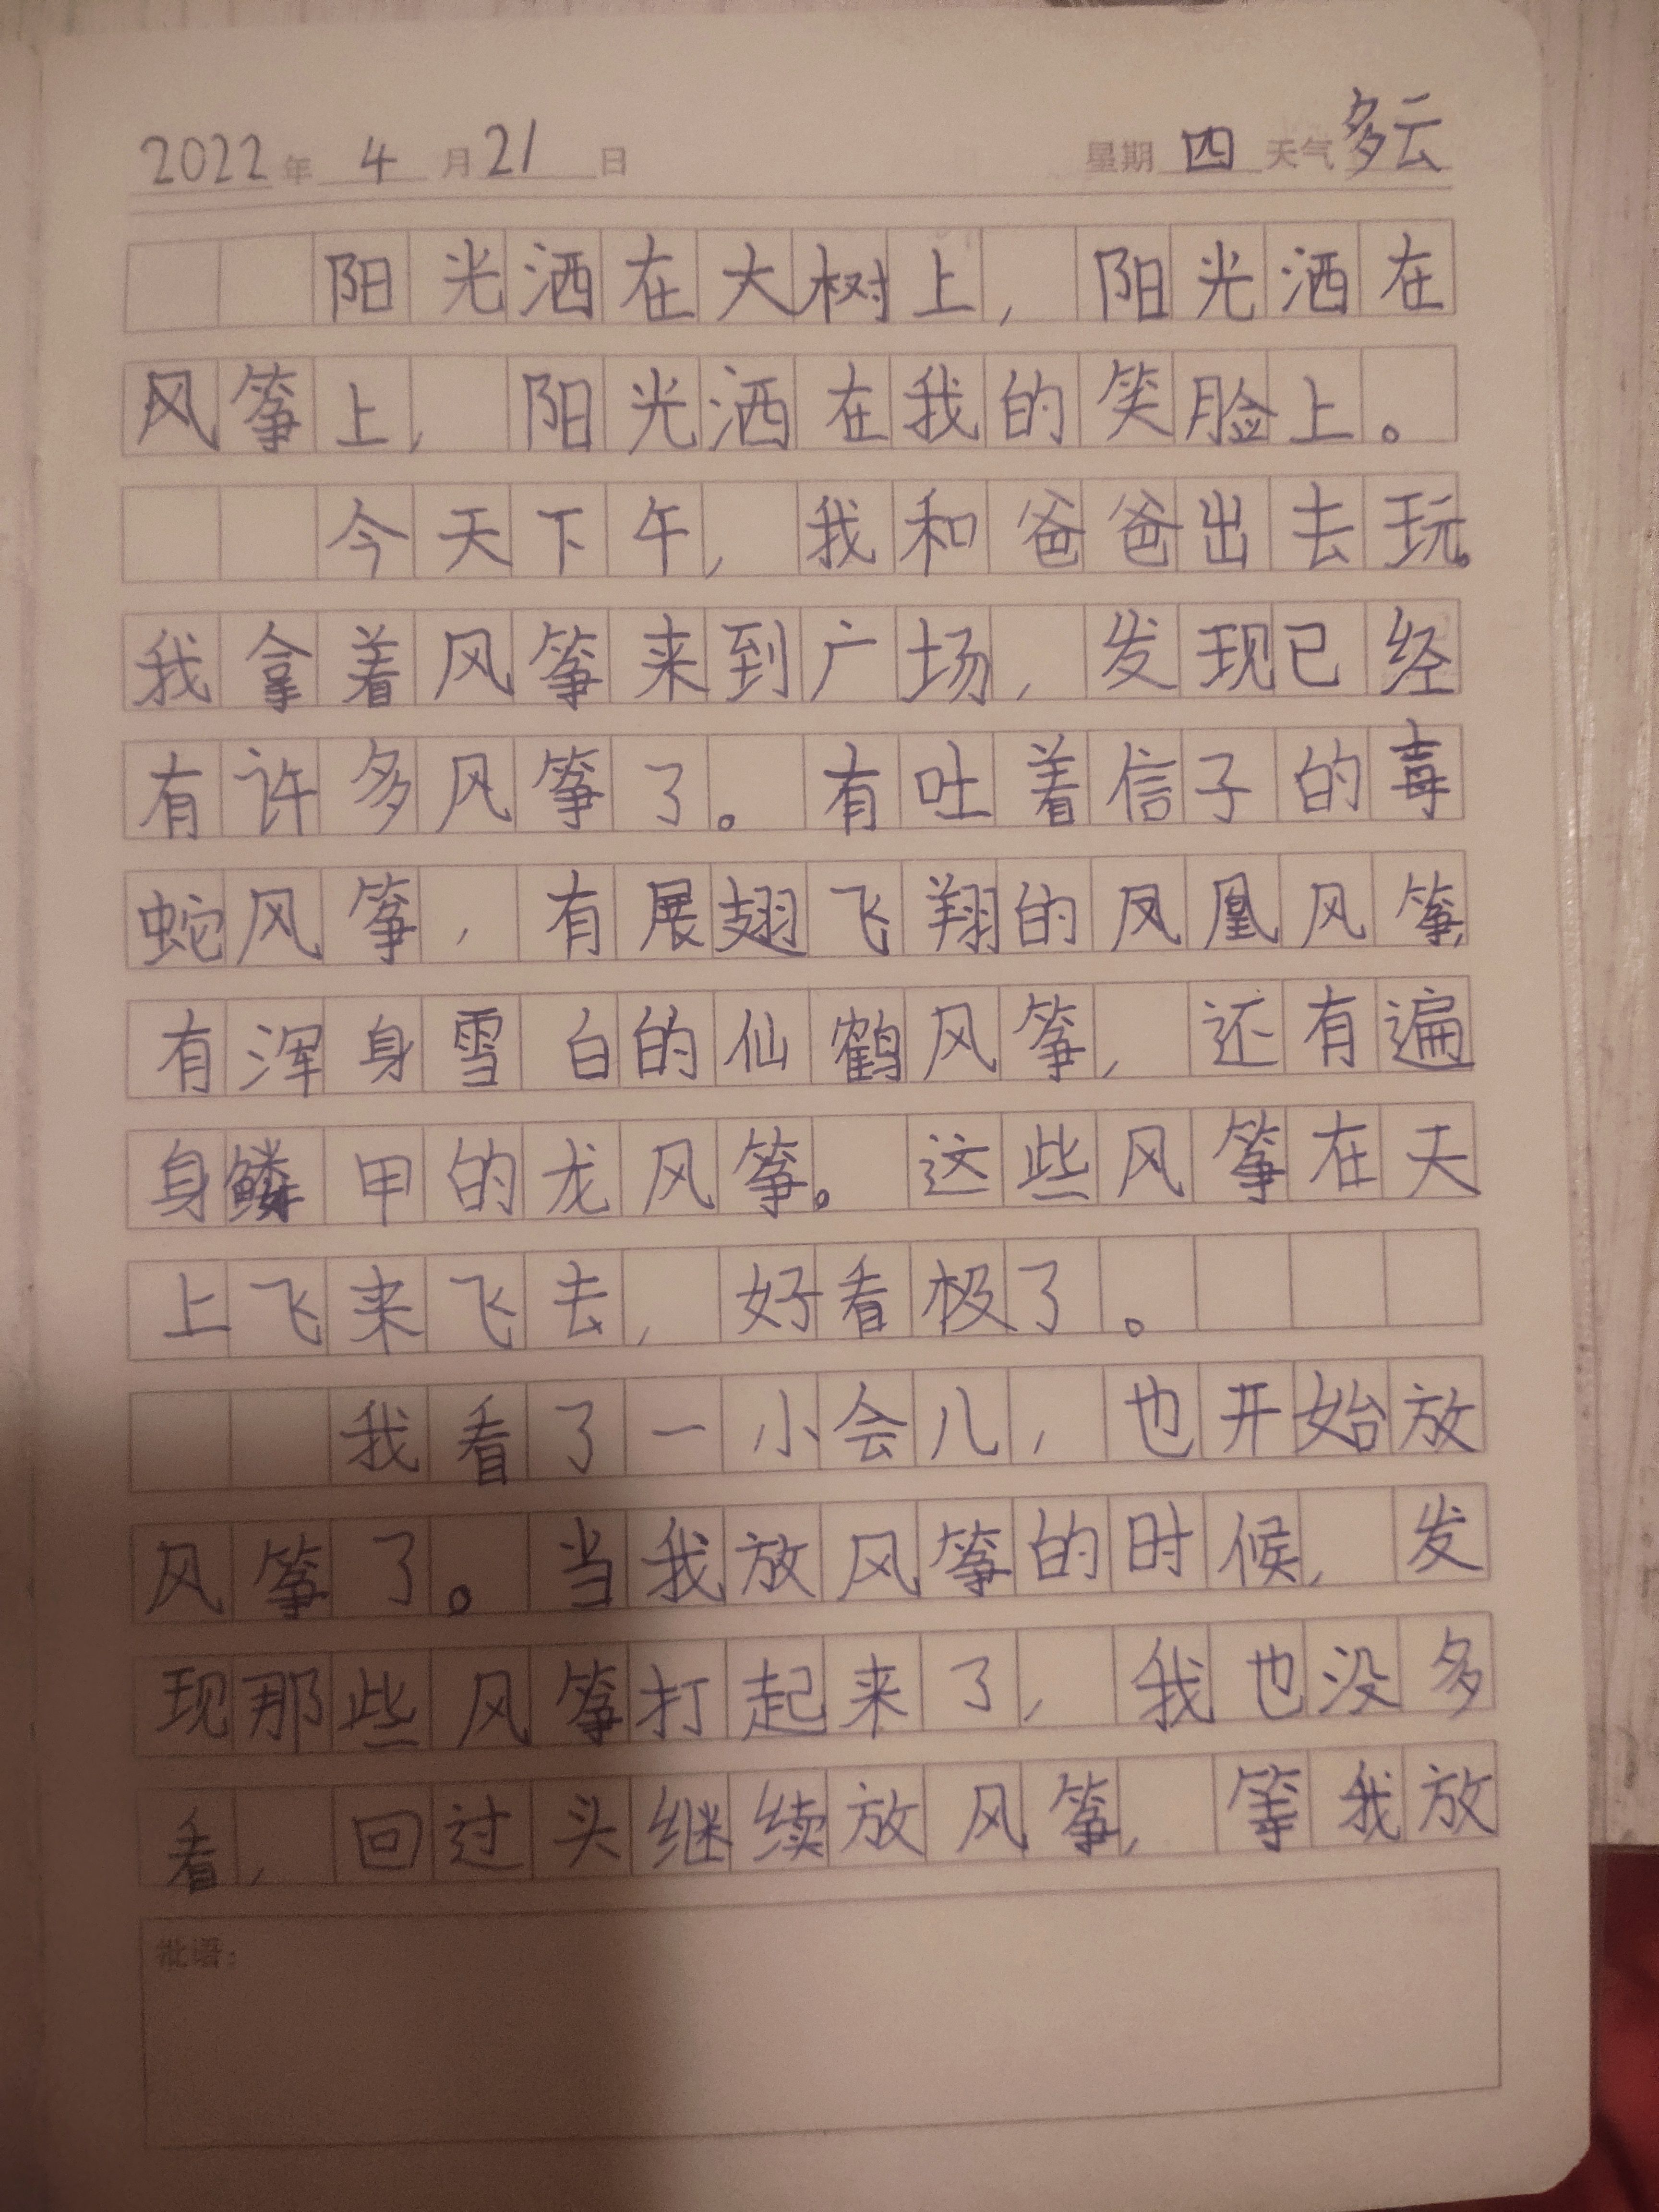 2022年 4月21日 星期四 天气多云
阳光洒在大树上，阳光洒在
风筝上，阳光洒在我的笑脸上。
今天下午，我和爸爸出去玩。
我拿着风筝来到广场，发现已经
有许多风筝了。有吐着信子的毒
蛇风筝，有展翅飞翔的凤凰风筝，
有浑身雪白的仙鹤风筝，还有遍
身鳞甲的龙风筝。这些风筝在天
上飞来飞去，好看极了。
我看了一小会儿，也开始放
风筝了。当我放风筝的时候，发
现那些风筝打起来了，我也没多
看，回过头继续放风筝，等我放
批语：